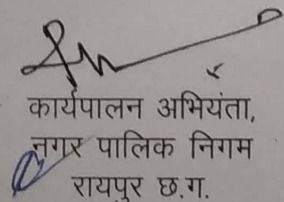 कार्यपालन अभियंता,
नगर पालिक निगम
रायपुर छ.ग.